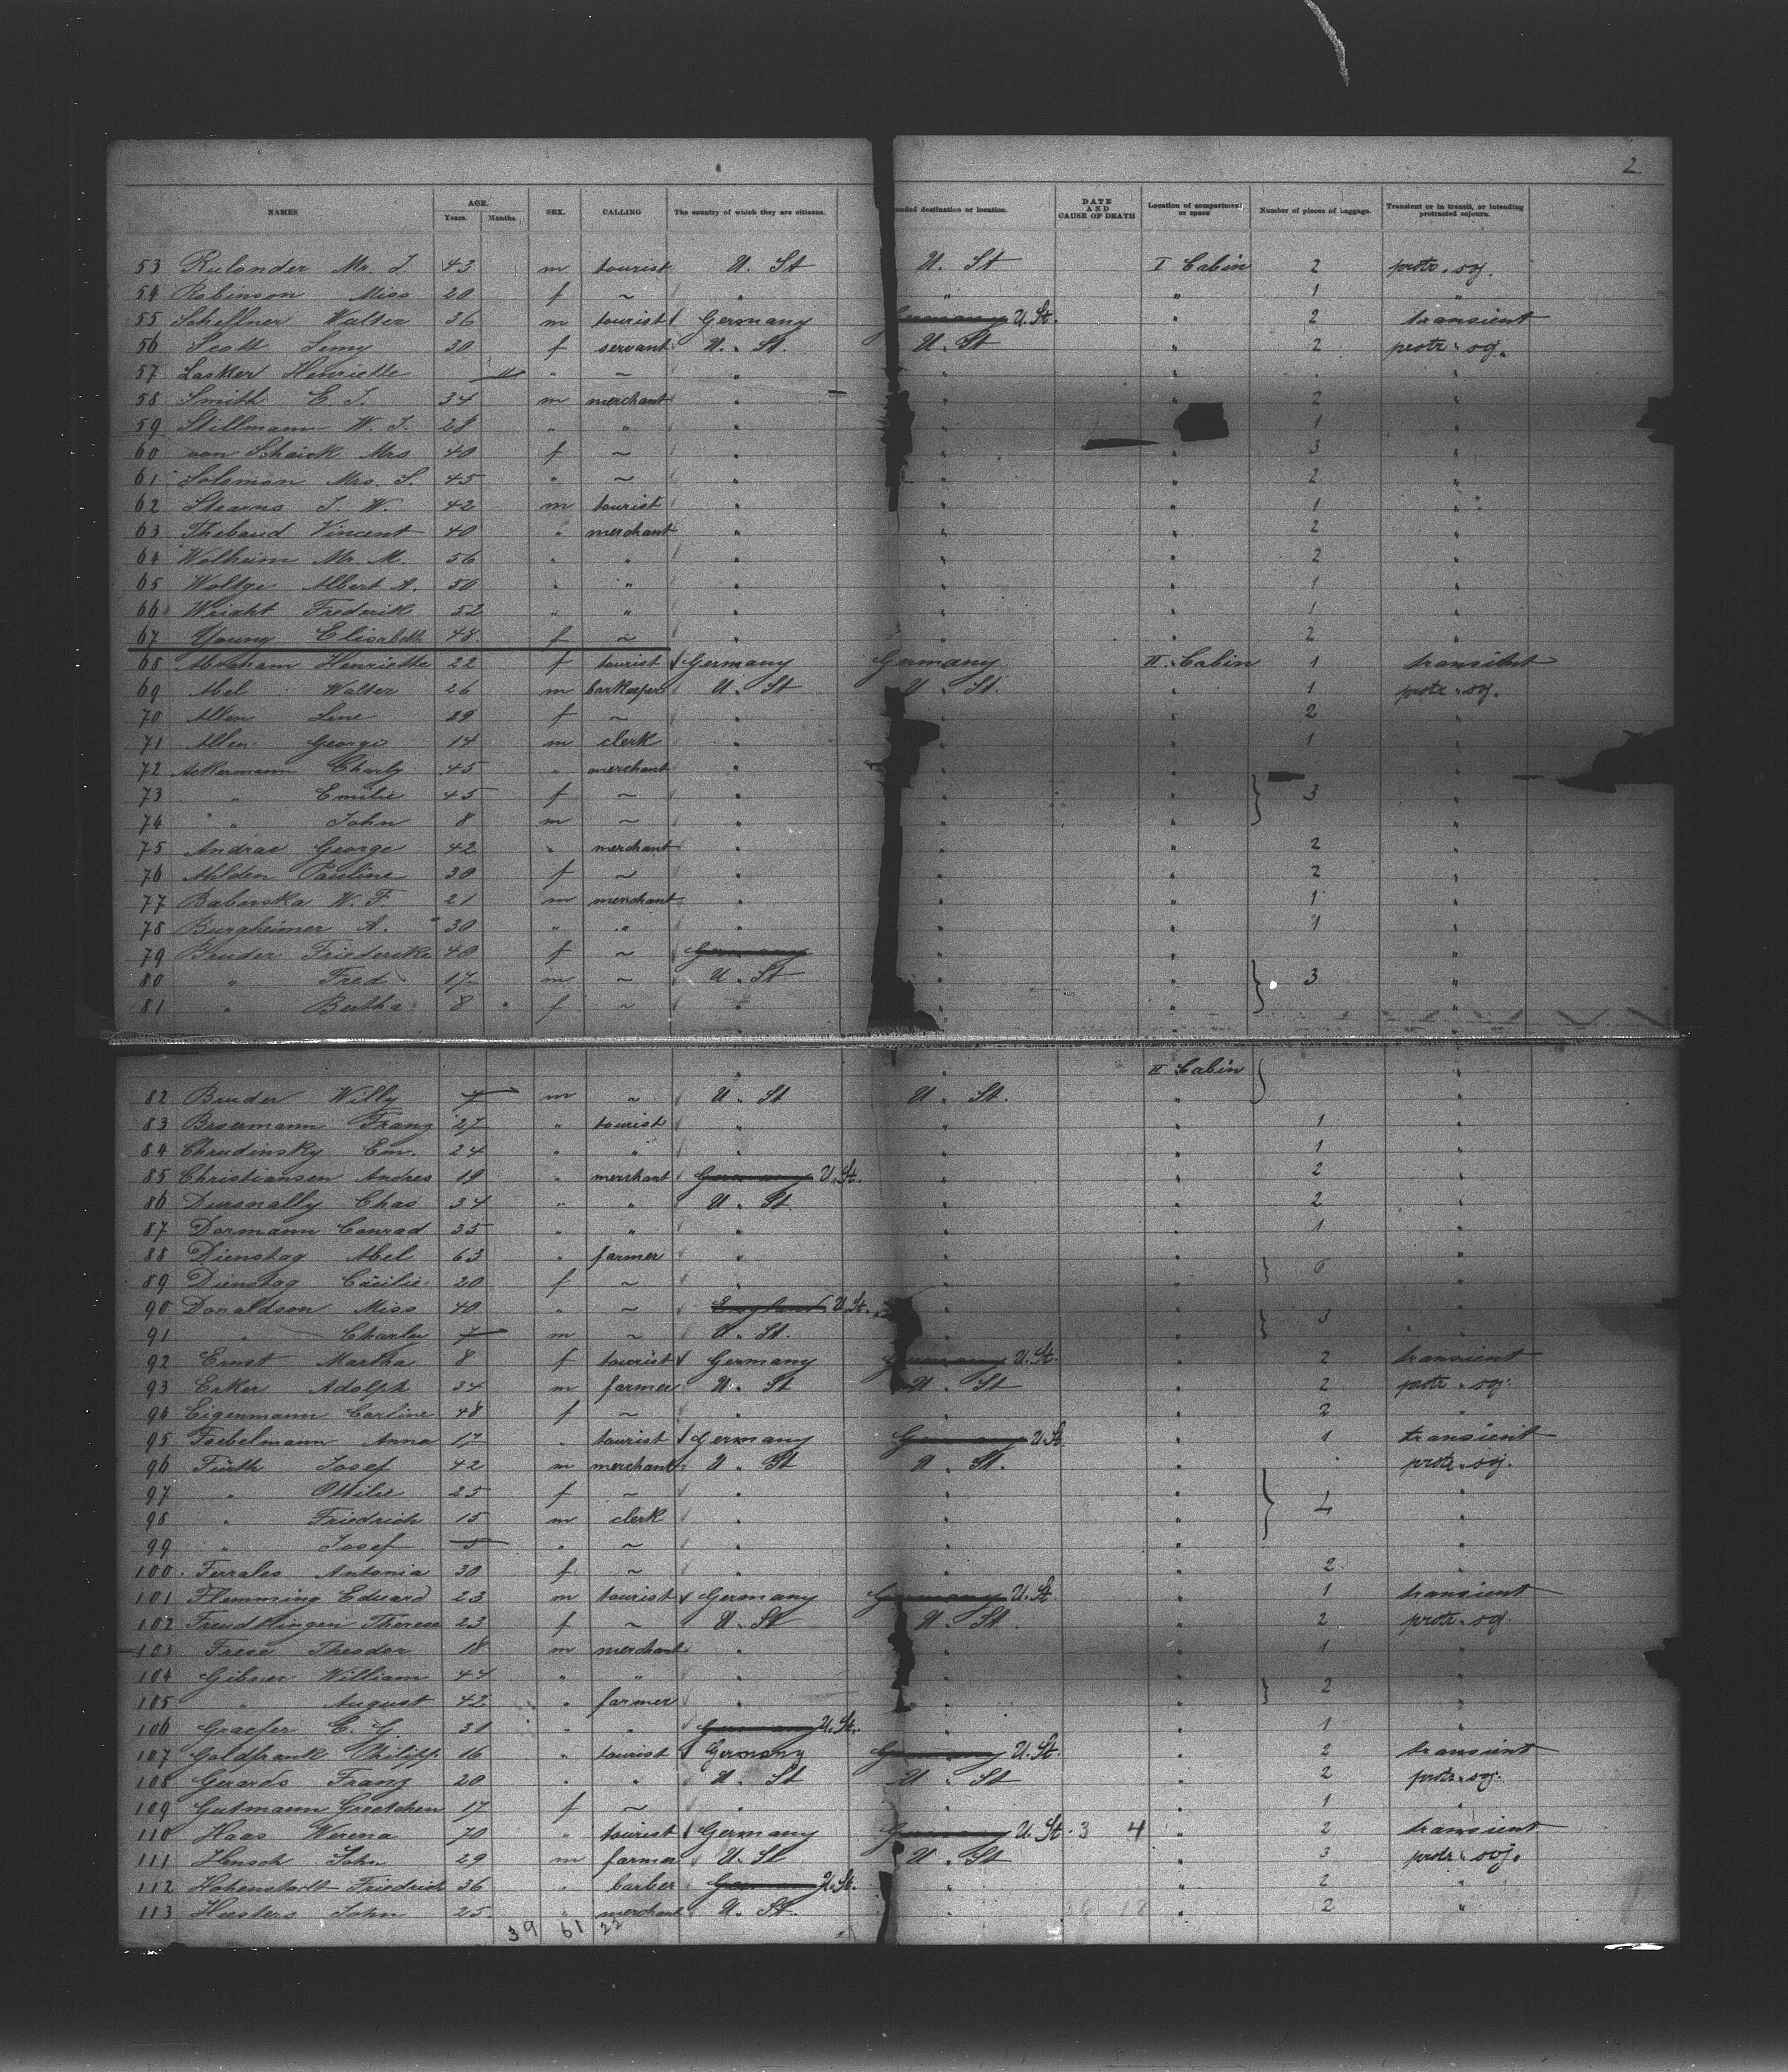 2
NAMES AGE. Years. Months. SEX. CALLING The country of which they are citizens. nded destination or location. DATE AND CAUSE OF DEATH Location of compartment or space Number of pieces of baggage. Transient or in transit, or intending protracted sojourn.
53 Rulander Mr. J. 43 m tourist U. St U. St I Cabin 2 protr. soj.
54 Robinson Miss 20 f ~ " " " 1 "
55 Schellner Walter 36 m tourist Germany Germany U. St. " 2 transient
56 Scott Jenny 30 f servant U. St. U. St " 2 protr. soj.
57 Lasker Henriette 11 " ~ " " " " "
58 Smith E. J. 34 m merchant " " 2 "
59 Stillmann W. J. 28 " " " " 1 "
60 van Schaick Mrs 40 f ~ " " " 3 "
61 Solomon Mrs. S. 45 " ~ " " " 2 "
62 Stearns J. W. 42 m tourist " " " 1 "
63 Thebaud Vincent 40 " merchant " " " 2 "
64 Wolheim Mr. M. 56 " " " " " 2 "
65 Woltge Albert A. 50 " " " " " 1 "
66 Wright Frederik 52 " " " " " 1 "
67 Young Elisabeth 48 f ~ " " " 2 "
68 Abraham Henriette 22 f tourist Germany Germany II. Cabin 1 transient
69 Abel Walter 26 m barkeeper U. St U. St. " 1 protr. soj.
70 Allen Line 29 f ~ " " " 2 "
71 Allen George 14 m clerk " " " 1 "
72 Ackermann Charly 45 " merchant " " " "
73 " Emilie 45 f ~ " " " 3 "
74 " John 8 m ~ " " " "
75 Andrae George 42 " merchant " " " 2 "
76 Ahlden Pauline 30 f ~ " " " 2 "
77 Babirska W. F. 21 m merchant " " " 1 "
78 Burgheimer A. 30 " " " " " 1 "
79 Bruder Friederike 40 f ~ Germany " " "
80 " Fred 17 m ~ U. St " " 3 "
81 " Bertha 8 f ~ " " " "
II Cabin
82 Bruder Willy 4 m ~ U. St U. St. " "
83 Broermann Franz 27 " tourist " " " 1 "
84 Chrudinsky Em. 24 " " " " " 1 "
85 Christiansen Andres 19 " merchant Germany U. St. " " 2 "
86 Dursnally Chas 34 " " U. St. " " 2 "
87 Dormann Conrad 35 " " " " " 1 "
88 Dienstag Abel 63 " farmer " " " "
89 Dienstag Cäcilie 20 f ~ " " " 6 "
90 Donaldson Miss 40 " ~ England U. St. " "
91 " Charles 7 m ~ U. St. " " 3 "
92 Ernst Martha 8 f tourist Germany Germany U. St. " 2 transient
93 Ecker Adolph 34 m farmer U. St U. St " 2 protr. soj.
94 Eigenmann Carline 48 f ~ " " " 2 "
95 Foebelmann Anna 17 " tourist Germany Germany U St. " 1 transient
96 Fürth Josef 42 m merchant U. St U. St. " protr. soj.
97 " Ottilie 25 f ~ " " " "
98 " Friedrich 15 m clerk " " " 4 "
99 " Josef 5 " ~ " " " "
100. Ferrales Antonia 30 f ~ " " " 2 "
101 Flemming Eduard 23 m tourist Germany Germany U. St " 1 transient
102 Freudtlingen Therese 23 f ~ U. St U. St. " 2 protr. soj.
103 Frese Theodor 18 m merchant " " " 1 "
104 Gibner William 44 " " " " " "
105 " August 42 " farmer " " " 2 "
106 Graefer C. G. 31 " " Germany U. St. " " 1 "
107 Goldfrank Philipp 16 " tourist Germany Germany U. St. " 2 transient
108 Gerards Franz 20 " " U. St U. St " 2 protr. soj.
109 Gutmann Gretchen 17 f ~ " " " 1 "
110 Haas Werena 70 " tourist Germany Germany U. St. 3 4 " 2 transient
111 Hensch John 29 m farmer U. St U. St " 3 protr. soj.
112 Hohenstadt Friedrich 36 " barber Germany U. St. " " 2 "
113 Heesters John 25 " merchant U. St. " " 2 "
39 61 22